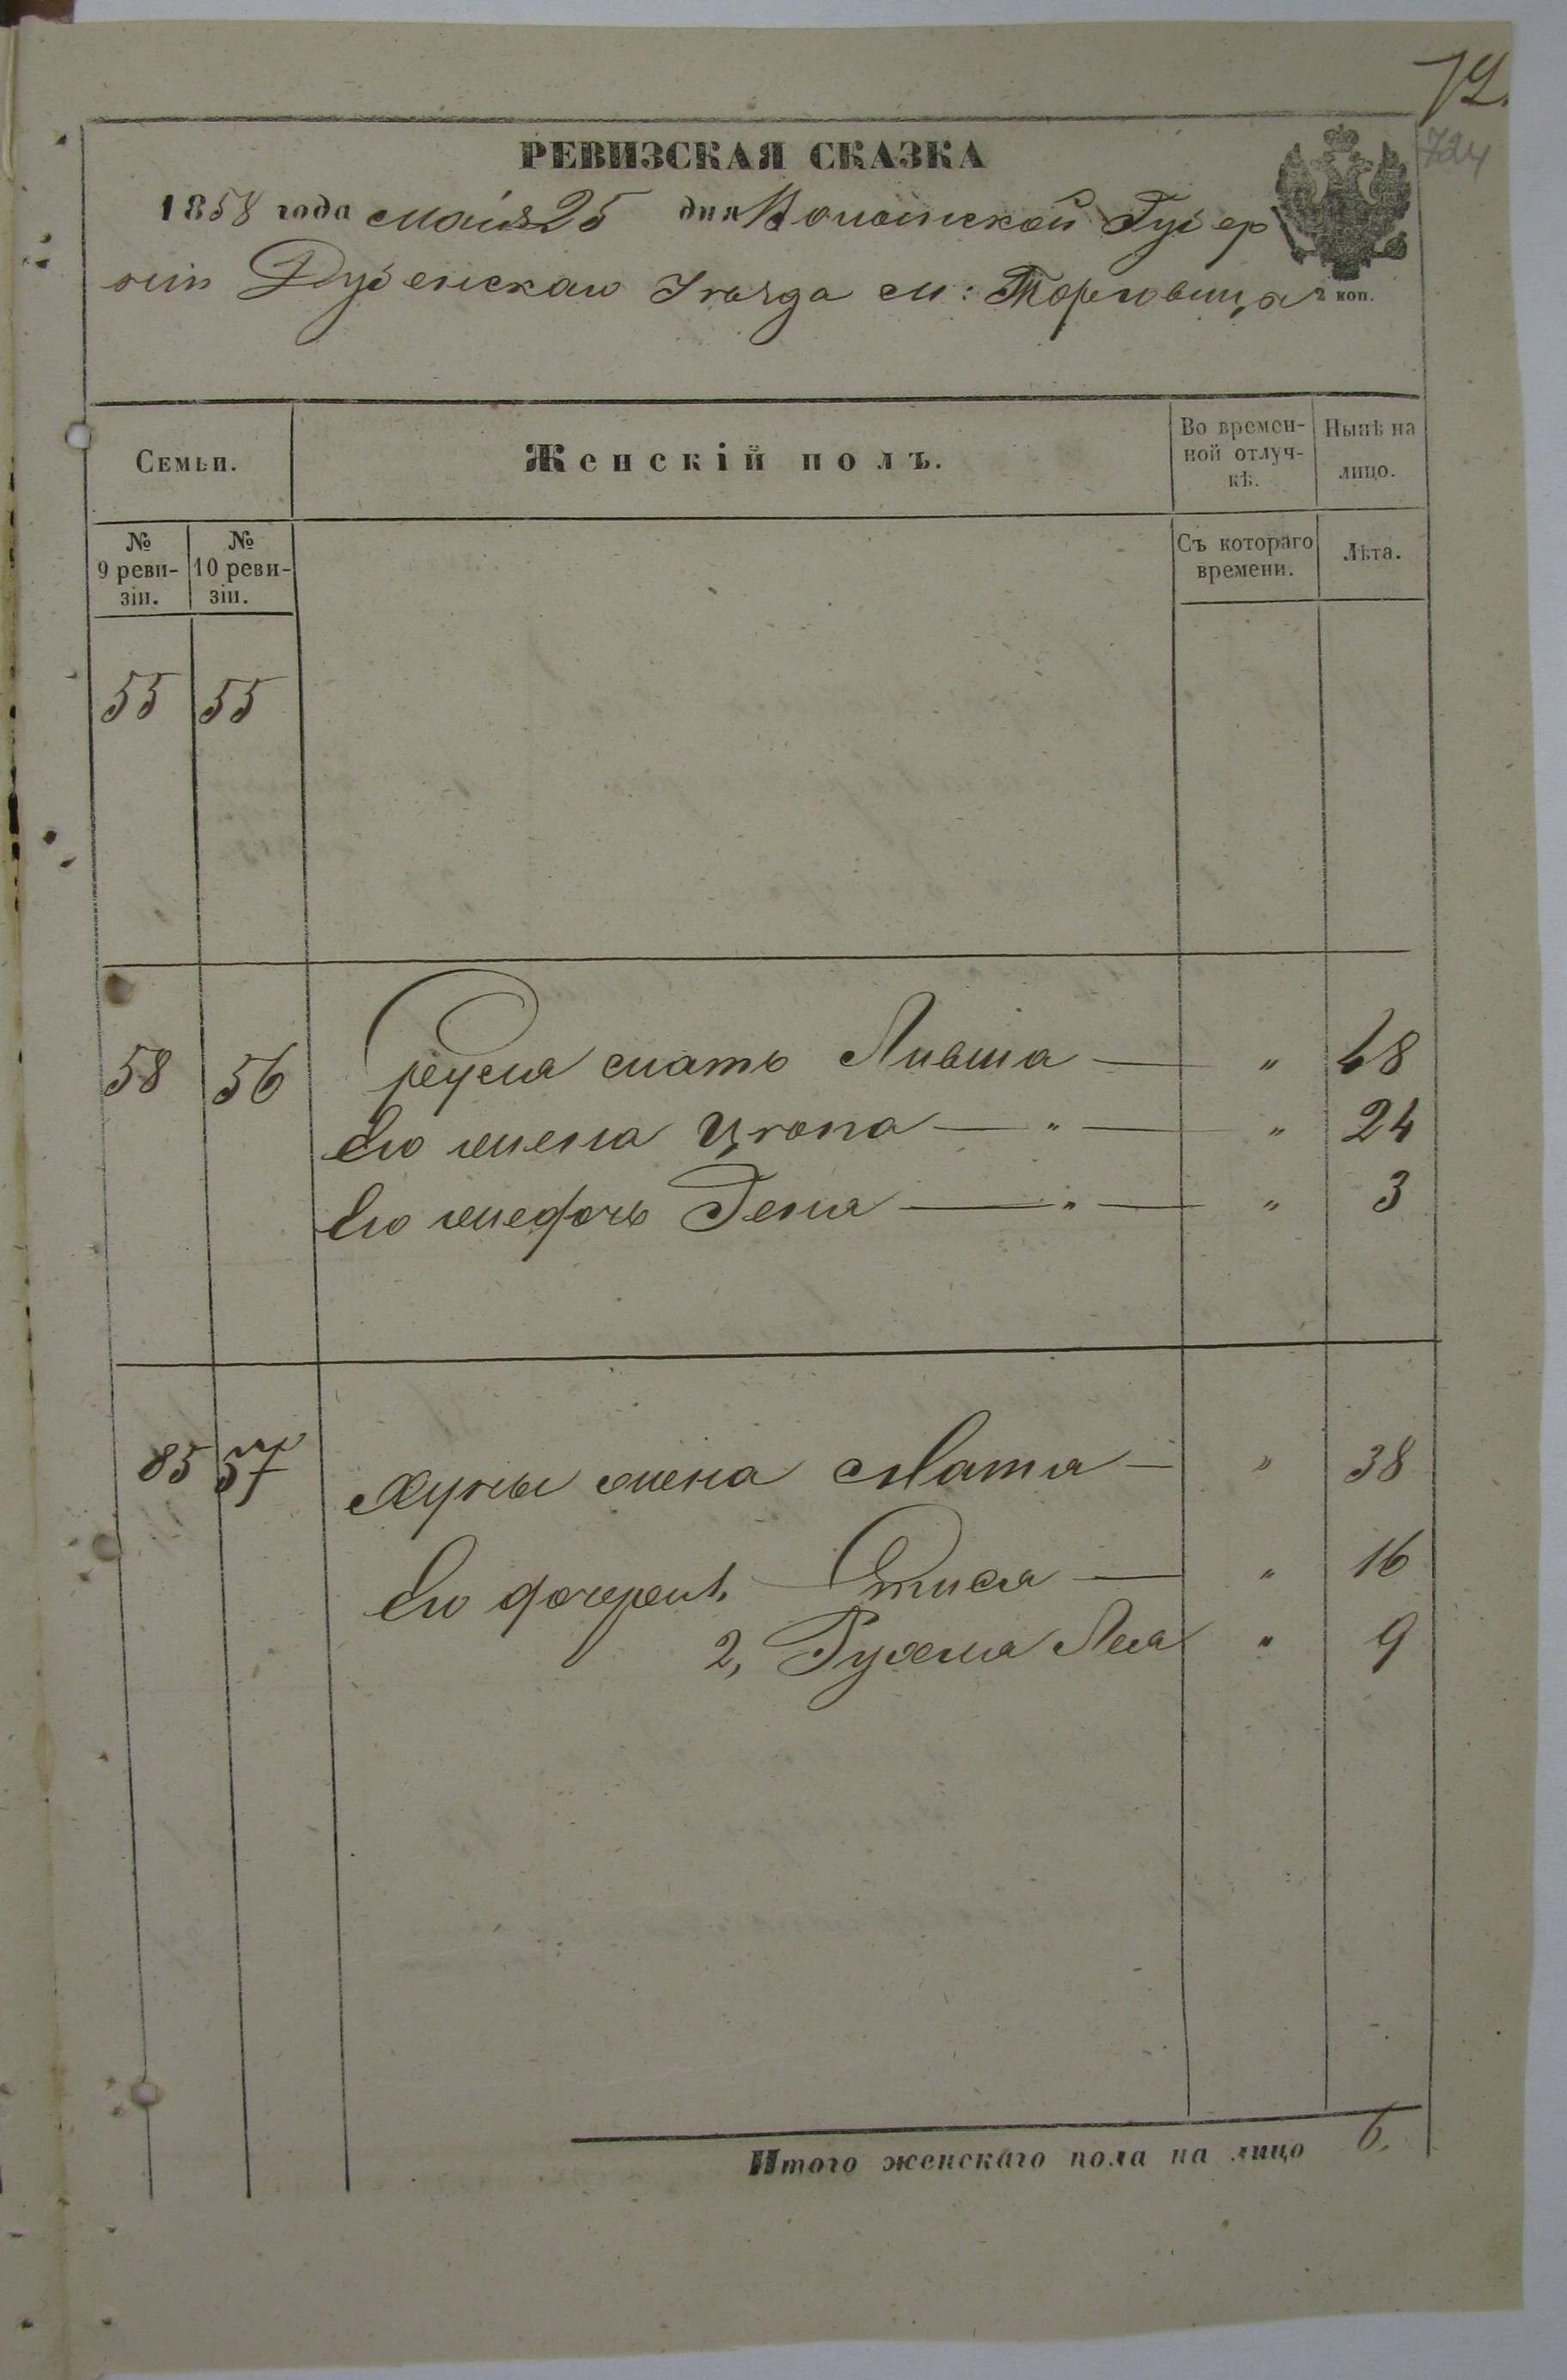 72.
724
РЕВИЗСКАЯ СКАЗКА
1858 года маія 25 дня Волынской Губер
ніи Дубенскаго Уѣзда м: Торговица
2 коп.
Семьи.
Женскій полъ.
Во времен-
ной отлуч-
кѣ.
Нынѣ на
лицо.
№
9 реви-
зіи.
№
10 реви-
зіи.
Съ котораго
времени.
Лѣта.
55 55
58 56 мать Ливша — „ 48
Его жена Цюпа — „ — „ 24
Его же дочь Геня — „ — „ 3
85 57 жена Матля — „ 38
Его дочери 1, — „ 16
2, Рухля Лея „ 9
Итого женскаго пола на лицо 6.